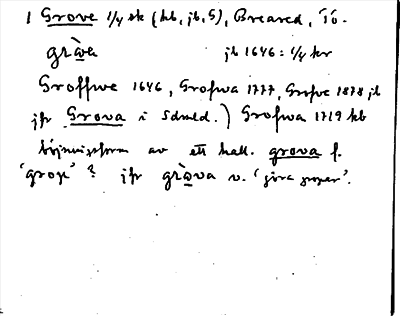 1 Grove 1/4 sk (kb, jb, S), Breared, Tö.
gràva jb 1646: 1/4 kr
Groffwe 1646, Grofwa 1777, Grofve 1878 jb
jfr Grova i Sdrld.) Grofwa 1719 kb
böjningsform av ett hall. grova f.
'grop' ? jfr gràva v. 'göra gropar'.